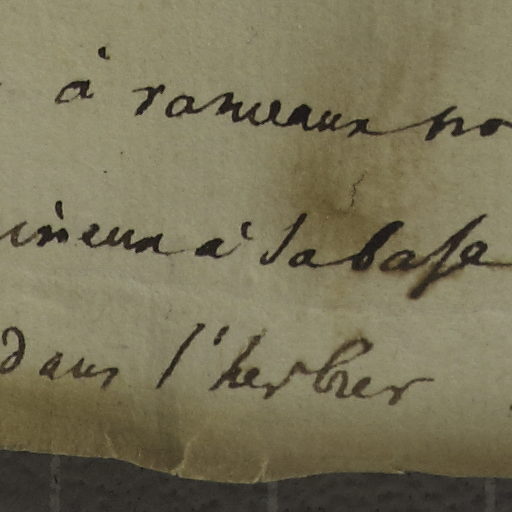 à rameaux no
à la base
dans l'herbier